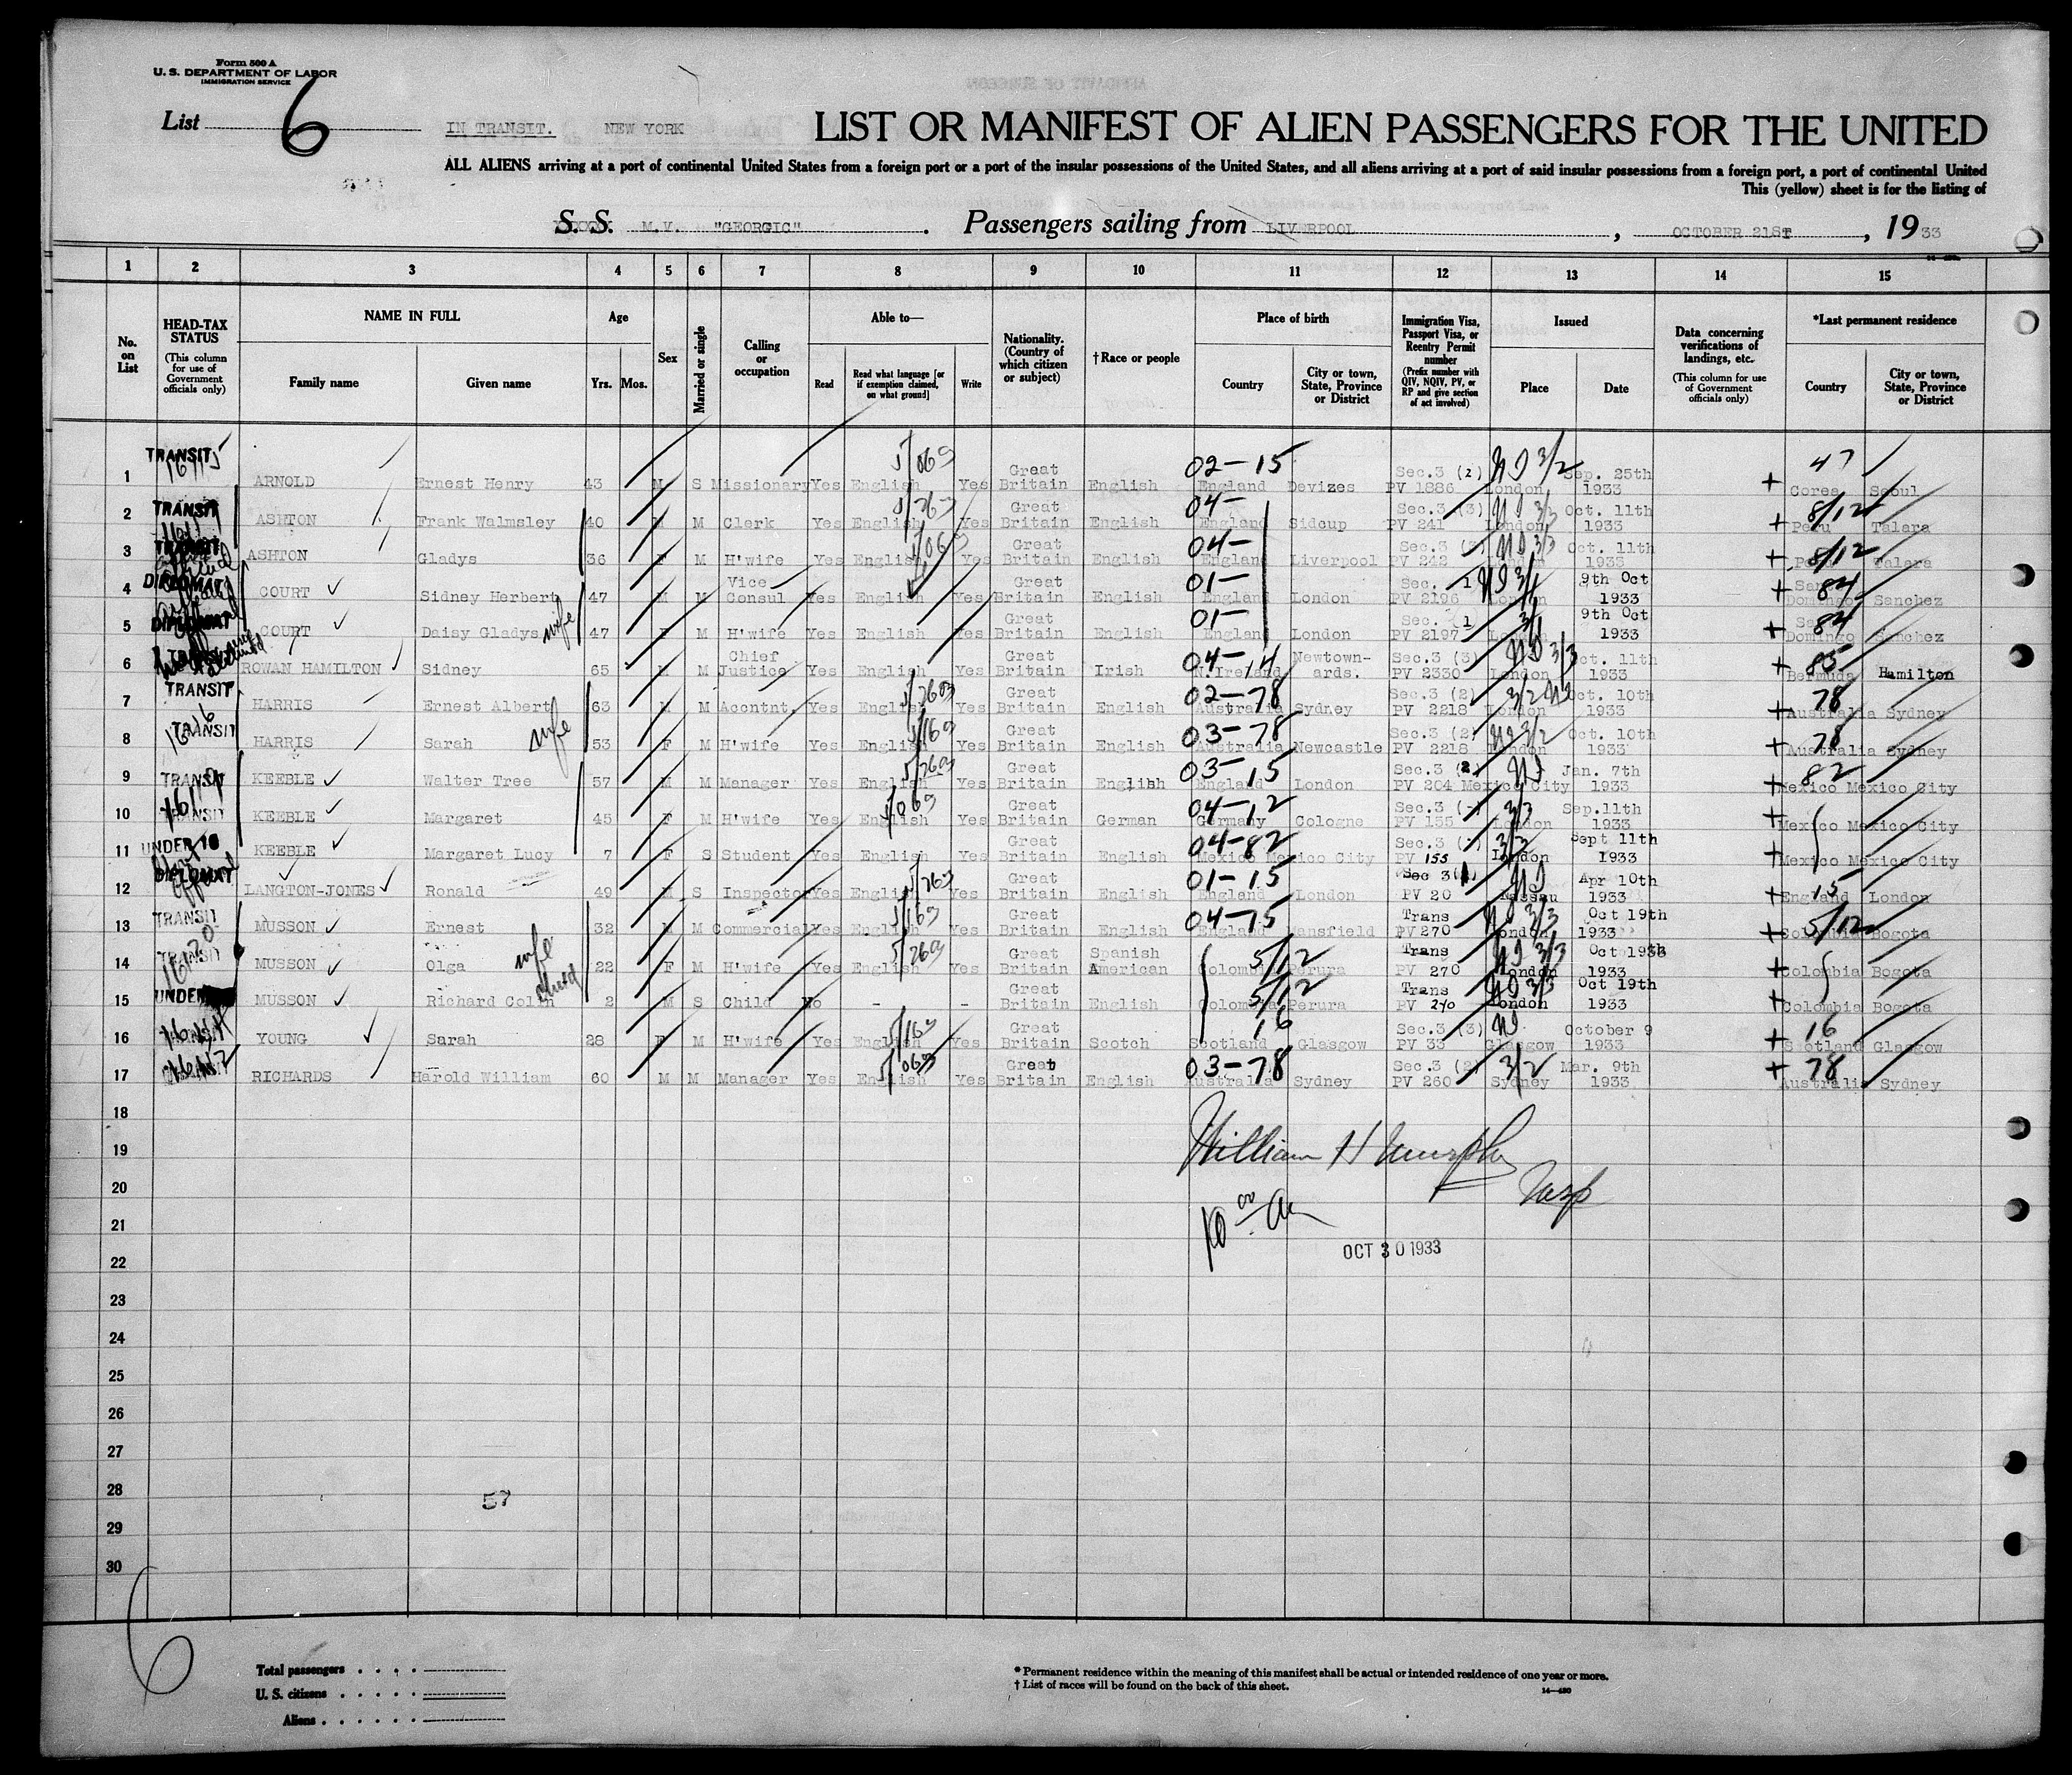 Form 500 A
U. S. DEPARTMENT OF LABOR
IMMIGRATION SERVICE
List 6 IN TRANSIT. NEW YORK LIST OR MANIFEST OF ALIEN PASSENGERS FOR THE UNITED
ALL ALIENS arriving at a port of continental United States from a foreign port or a port of the insular possessions of the United States, and all aliens arriving at a port of said insular possessions from a foreign port, a port of continental United
This (yellow) sheet is for the listing of
S. S. M.V. "GEORGIC" . Passengers sailing from LIVERPOOL , OCTOBER 21ST , 1933
1 2 3 4 5 6 7 8 9 10 11 12 13 14 15
No. on List
HEAD-TAX STATUS
(This column for use of Government officials only)
NAME IN FULL
Family name Given name
Age
Yrs. Mos.
Sex
Married or single
Calling or occupation
Able to—
Read Read what language [or if exemption claimed, on what ground] Write
Nationality. (Country of which citizen or subject)
†Race or people
Place of birth
Country City or town, State, Province or District
Immigration Visa, Passport Visa, or Reentry Permit number
(Prefix number with QIV, NQIV, PV, or RP and give section of act involved)
Issued
Place Date
Data concerning verifications of landings, etc.
(This column for use of Government officials only)
*Last permanent residence
Country City or town, State, Province or District
1 TRANSIT ARNOLD Ernest Henry 43 M S Missionary Yes English Yes Great Britain English 02-15 England Devizes Sec.3 (2) PV 1886 London Sep. 25th 1933 + 47 Corea Seoul
2 TRANSIT ASHTON Frank Walmsley 40 M M Clerk Yes English Yes Great Britain English 04- England Sidcup Sec.3 (3) PV 241 London Oct. 11th 1933 + 8/12 Peru Talara
3 TRANSIT ASHTON Gladys 36 F M H'wife Yes English Yes Great Britain English 04- England Liverpool Sec.3 PV 242 Oct. 11th 1933 + 8/12 Talara
4 DIPLOMAT COURT Sidney Herbert 47 M M Vice Consul Yes English Yes Great Britain English 01- England London Sec. 1 PV 2196 London 9th Oct 1933 + 84 Domingo Sanchez
5 DIPLOMAT COURT Daisy Gladys wife 47 F M H'wife Yes English Yes Great Britain English 01- England London Sec. (1) PV 2197 London 9th Oct 1933 + 84 Domingo Sanchez
6 ROWAN HAMILTON Sidney 65 M M Chief Justice Yes English Yes Great Britain Irish 04-14 N.Ireland Newtown-ards. Sec.3 (3) PV 2330 London Oct. 11th 1933 + 85 Bermuda Hamilton
7 TRANSIT HARRIS Ernest Albert 63 M M Accntnt. Yes English Yes Great Britain English 02-78 Australia Sydney Sec.3 (2) PV 2218 London Oct. 10th 1933 + 78 Australia Sydney
8 TRANSIT HARRIS Sarah wife 53 F M H'wife Yes English Yes Great Britain English 03-78 Australia Newcastle Sec.3 (2) PV 2218 London Oct. 10th 1933 + 78 Australia Sydney
9 TRANSIT KEEBLE Walter Tree 57 M M Manager Yes English Yes Great Britain English 03-15 England London Sec.3 (2) PV 204 Mexico City Jan. 7th 1933 + 82 Mexico Mexico City
10 TRANSIT KEEBLE Margaret 45 F M H'wife Yes English Yes Great Britain German 04-12 Germany Cologne Sec.3 PV 155 London Sep.11th 1933 + Mexico Mexico City
11 UNDER 16 KEEBLE Margaret Lucy 7 F S Student Yes English Yes Great Britain English 04-82 Mexico Mexico City Sec.3 PV 155 London Sept 11th 1933 + Mexico Mexico City
12 DIPLOMAT LANGTON-JONES Ronald 49 M S Inspector Yes English Yes Great Britain English 01-15 England London Sec 3(1) PV 20 Nassau Apr 10th 1933 + 15 England London
13 TRANSIT MUSSON Ernest 32 M M Commercial Yes English Yes Great Britain English 04-15 England Mansfield Trans PV270 London Oct 19th 1933 + 5/12 Colombia Bogota
14 TRANSIT MUSSON Olga wife 22 F M H'wife Yes English Yes Great Britain Spanish American 5/12 Colombia Perura Trans PV 270 London Oct 19th 1933 + Colombia Bogota
15 UNDER MUSSON Richard Colin child 2 M S Child No - - Great Britain English 5/12 Colombia Perura Trans PV 270 London Oct 19th 1933 + Colombia Bogota
16 YOUNG Sarah 28 F M H'wife Yes English Yes Great Britain Scotch 16 Scotland Glasgow Sec.3 (3) PV 33 Glasgow October 9 1933 + 16 Scotland Glasgow
17 RICHARDS Harold William 60 M M Manager Yes English Yes Great Britain English 03-78 Australia Sydney Sec.3 (2) PV 260 Sydney Mar. 9th 1933 + 78 Australia Sydney
18
19 William H Murphy
20 Insp
21 10 00 Am
22 OCT 30 1933
23
24
25
26
27
28 57
29
30
6
Total passengers
U. S. citizens
Aliens
* Permanent residence within the meaning of this manifest shall be actual or intended residence of one year or more.
† List of races will be found on the back of this sheet.
14—430